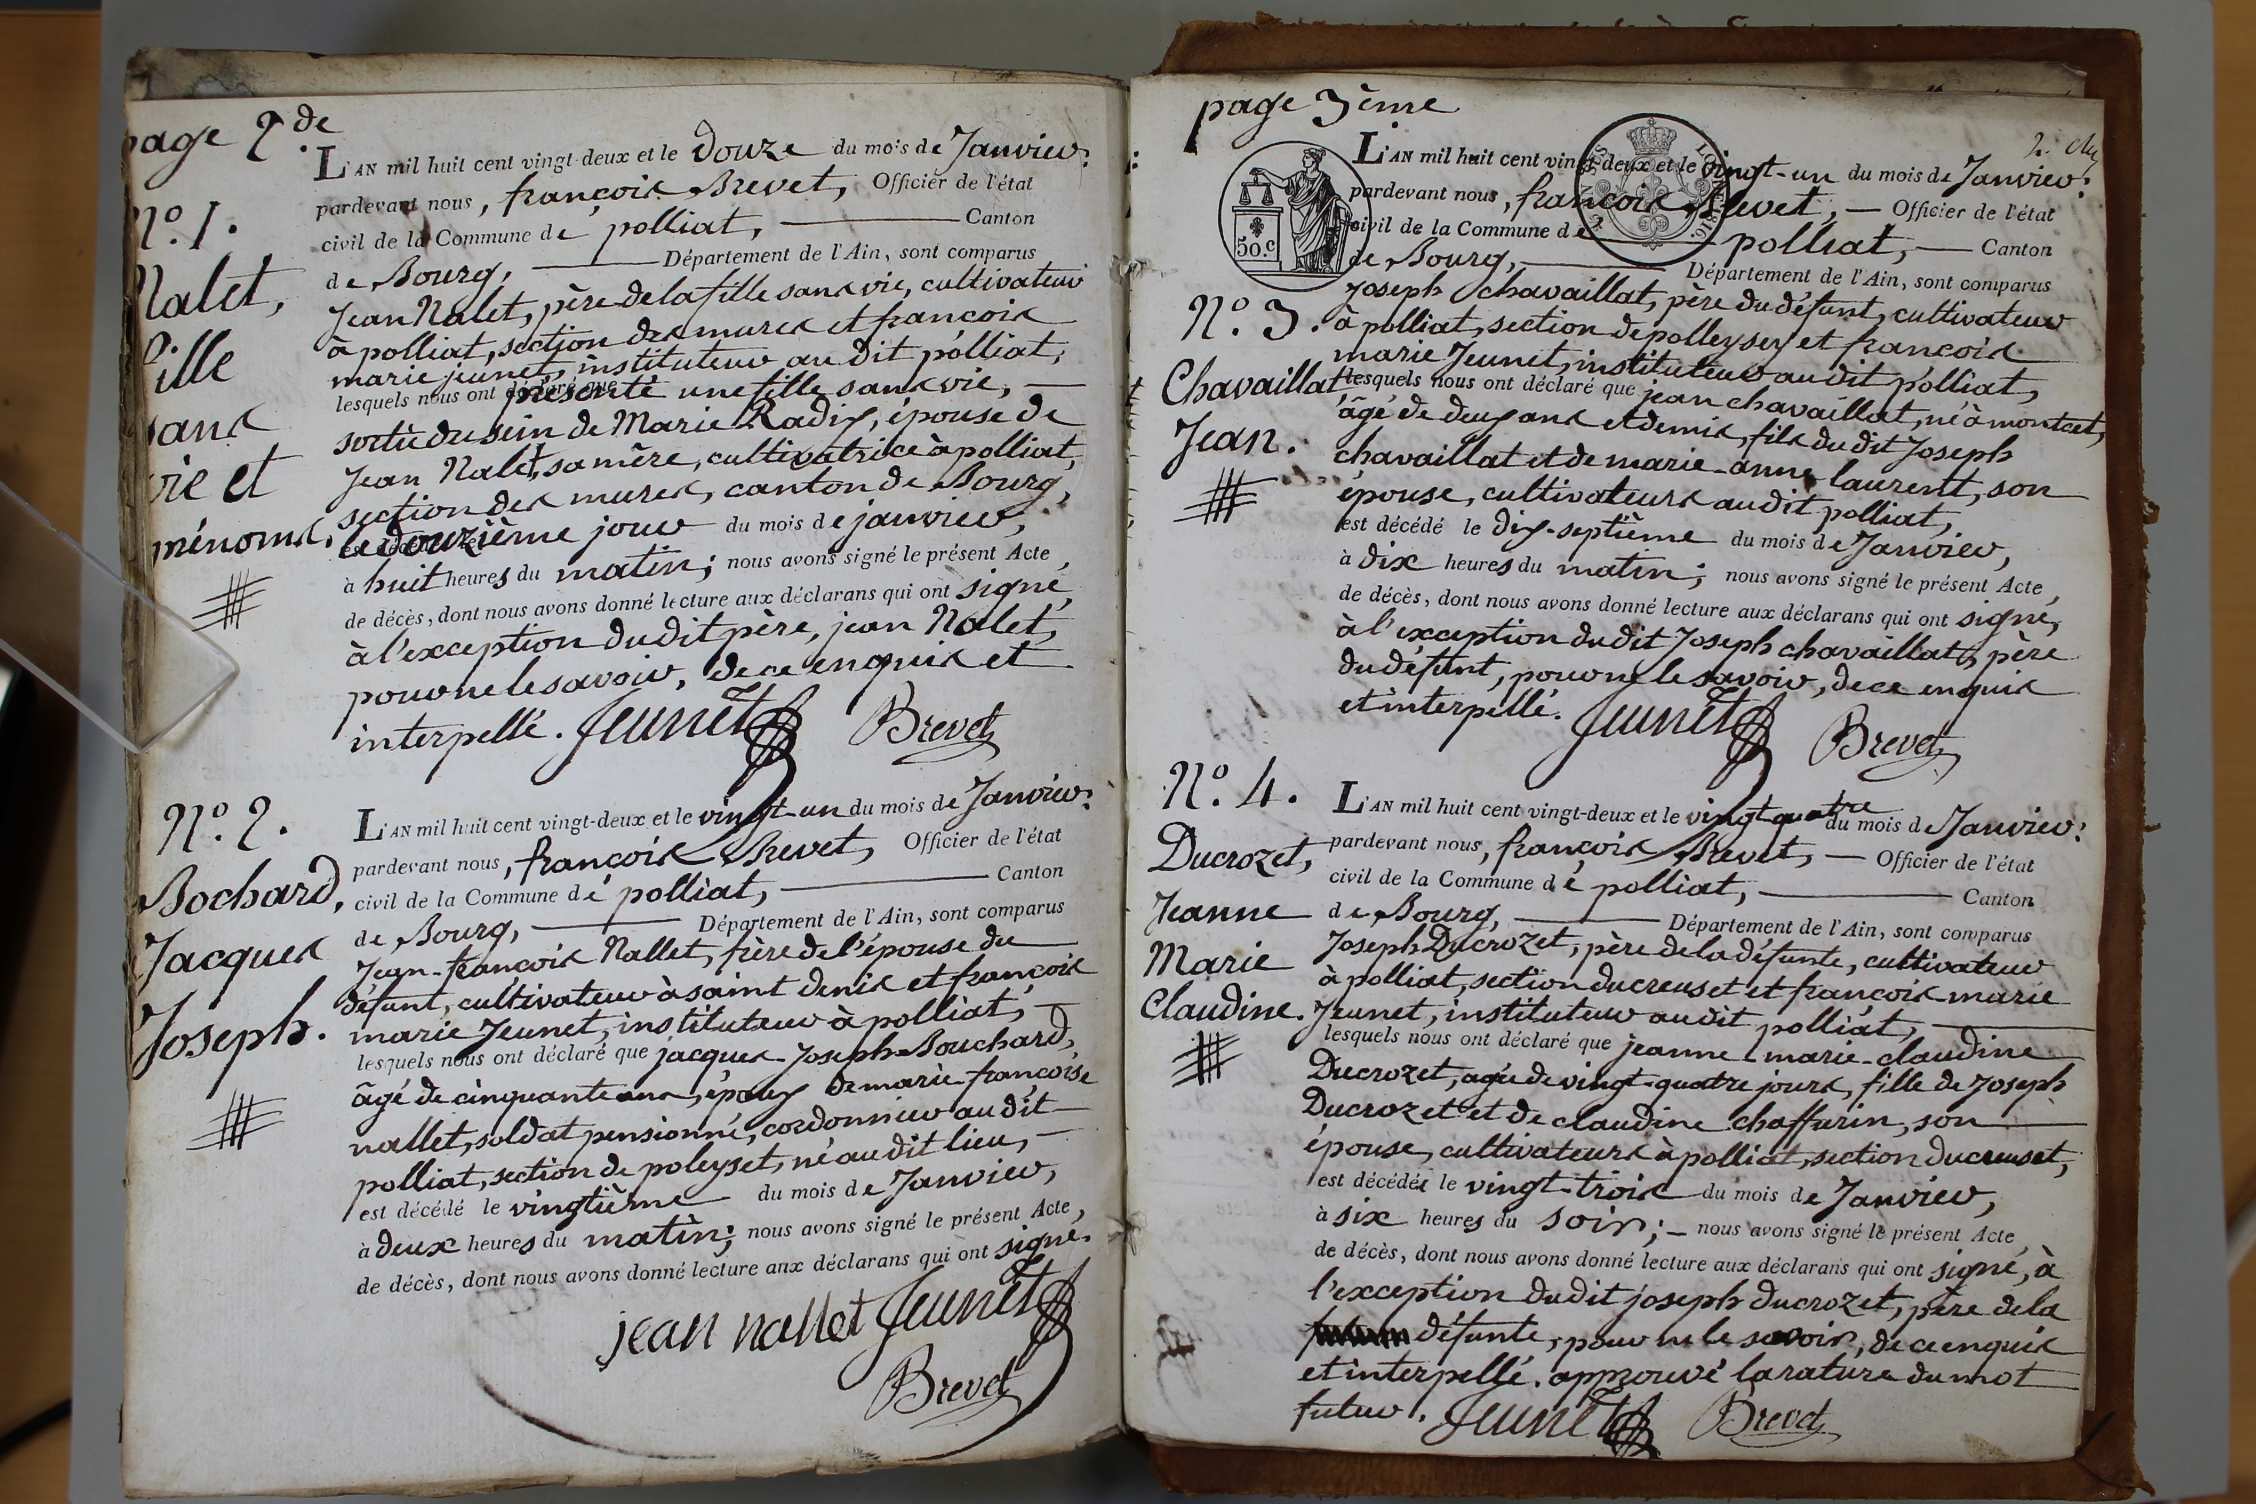 page 2.de
N.o 1.
Nalet,
fille
sans
vie et
prénoms.
L'AN mil huit cent vingt-deux et le douze du mois de Janvier:
pardevant nous, françois Brevet, Officier de l'état
civil de la Commune de polliat, Canton
de Bourg, Département de l'Ain, sont comparus
Jean Nalet, père de la fille sans vie, cultivateur
à polliat, section des mures et françois
marie jeunet, instituteur au dit polliat,
lesquels nous ont déclaré que
présenté une fille sans vie,
sortie du sein de Marie Radix, épouse de
Jean Nalet, sa mère, cultivatrice à polliat,
section des mures, canton de Bourg,
le douzième jour du mois de janvier,
à huit heures du matin; nous avons signé le présent Acte,
de décès, dont nous avons donné lecture aux déclarans qui ont signé,
à l'exception du dit père, jean Nalet,
pour ne le savoir, de ce enquis et
interpellé. Jeunet Brevet
N.o 2.
Bochard,
Jacques
Joseph.
L'AN mil huit cent vingt-deux et le vingt-un du mois de Janvier:
pardevant nous, françois Brevet, Officier de l'état
civil de la Commune de polliat, Canton
de Bourg, Département de l'Ain, sont comparus
Jean-françois Nallet, frère de l'épouse du
défunt, cultivateur à saint denis et françois
marie Jeunet, instituteur à polliat,
lesquels nous ont déclaré que jacques-Joseph Bouchard,
âgé de cinquante ans, époux de marie françoise
nallet, soldat pensionné, cordonnier au dit
polliat, section de poleyset, né au dit lieu,
est décédé le vingtième du mois de Janvier,
à deux heures du matin; nous avons signé le présent Acte,
de décès, dont nous avons donné lecture aux déclarans qui ont signé.
jean nallet Jeunet
Brevet
page 3ème
50.c
N.o 3.
Chavaillat
Jean.
L'AN mil huit cent vingt-deux et le vingt-un du mois de Janvier:
pardevant nous, françois Brevet, Officier de l'état
civil de la Commune de polliat, Canton
de Bourg, Département de l'Ain, sont comparus
Joseph chavaillat, père du défunt, cultivateur
à polliat, section de polleysey et françois
marie Jeunet, instituteur au dit polliat,
lesquels nous ont déclaré que jean chavaillat, né à montcet,
âgé de deux ans et demis, fils du dit Joseph
chavaillat et de marie-anne laurent, son
épouse, cultivateurs au dit polliat,
est décédé le dix-septième du mois de Janvier,
à dix heures du matin; nous avons signé le présent Acte,
de décès, dont nous avons donné lecture aux déclarans qui ont signé,
à l'exception du dit Joseph chavaillat, père
du défunt, pour ne le savoir, de ce enquis
et interpellé. Jeunet Brevet
N.o 4.
Ducrozet,
Jeanne
Marie
Claudine.
L'AN mil huit cent vingt-deux et le vingt quatre du mois de Janvier:
pardevant nous, françois Brevet, Officier de l'état
civil de la Commune de polliat, Canton
de Bourg, Département de l'Ain, sont comparus
Joseph Ducrozet, père de la défunte, cultivateur
à polliat, section du creuset et françois-marie
Jeunet, instituteur au dit polliat,
lesquels nous ont déclaré que jeanne-marie-claudine
Ducrozet, agée de vingt-quatre jours, fille de Joseph
Ducrozet et de claudine chaffurin, son
épouse, cultivateurs à polliat, section du creuset,
est décédée le vingt-trois du mois de Janvier,
à six heures du soir; nous avons signé le présent Acte,
de décès, dont nous avons donné lecture aux déclarans qui ont signé, à
l'exception du dit joseph Ducrozet, père de la
défunte, pour ne le savoir, de ce enquis
et interpellé. approuvé la rature du mot
futur. Jeunet Brevet